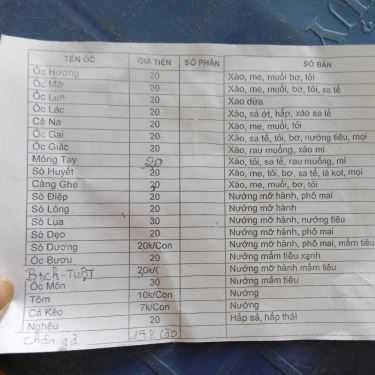 TÊN ỐC GIÁ TIỀN SỐ PHẦN SỐ BÀN
Ốc Hương 20 Xào, me, muối bơ, tỏi
Ốc Mỡ 20 Xào, me, muối, bơ, tỏi, sa tế
Ốc Len 20 Xào dừa
Ốc Lác 20 Xào, sả ớt, hấp, xào sa tế
Cà Na 20 Xào, me, muối, tỏi
Ốc Gai 20 Xào, sa tế, tỏi, bơ, nướng tiêu, mọi
Ốc Giác 20 Xào, rau muống, xào mì
Móng Tay 20 Xào, tỏi, sa tế, rau muống, mì
Sò Huyết 20 Xào, me, tỏi, bơ, sa tế, lá kot, mọi
Càng Ghẹ 20 Xào, me, muối, bơ, tỏi
Sò Điệp 20 Nướng mỡ hành, phô mai
Sò Lông 20 Nướng mỡ hành
Sò Lụa 30 Nướng mỡ hành, nướng tiêu
Sò Dẹo 20 Nướng mỡ hành, phô mai
Sò Dương 20k/Con Nướng mỡ hành, phô mai, mắm tiêu
Ốc Bươu 20 Nướng mắm tiêu xqnh
Bạch-Tuột 20k/ Nướng mỡ hành mắm tiêu
Ốc Món 30 Nướng mắm tiêu
Tôm 10k/Con Nướng
Cá Kèo 7k/Con Nướng
Nghêu 20 Hấp sả, hấp thái
Chân gà